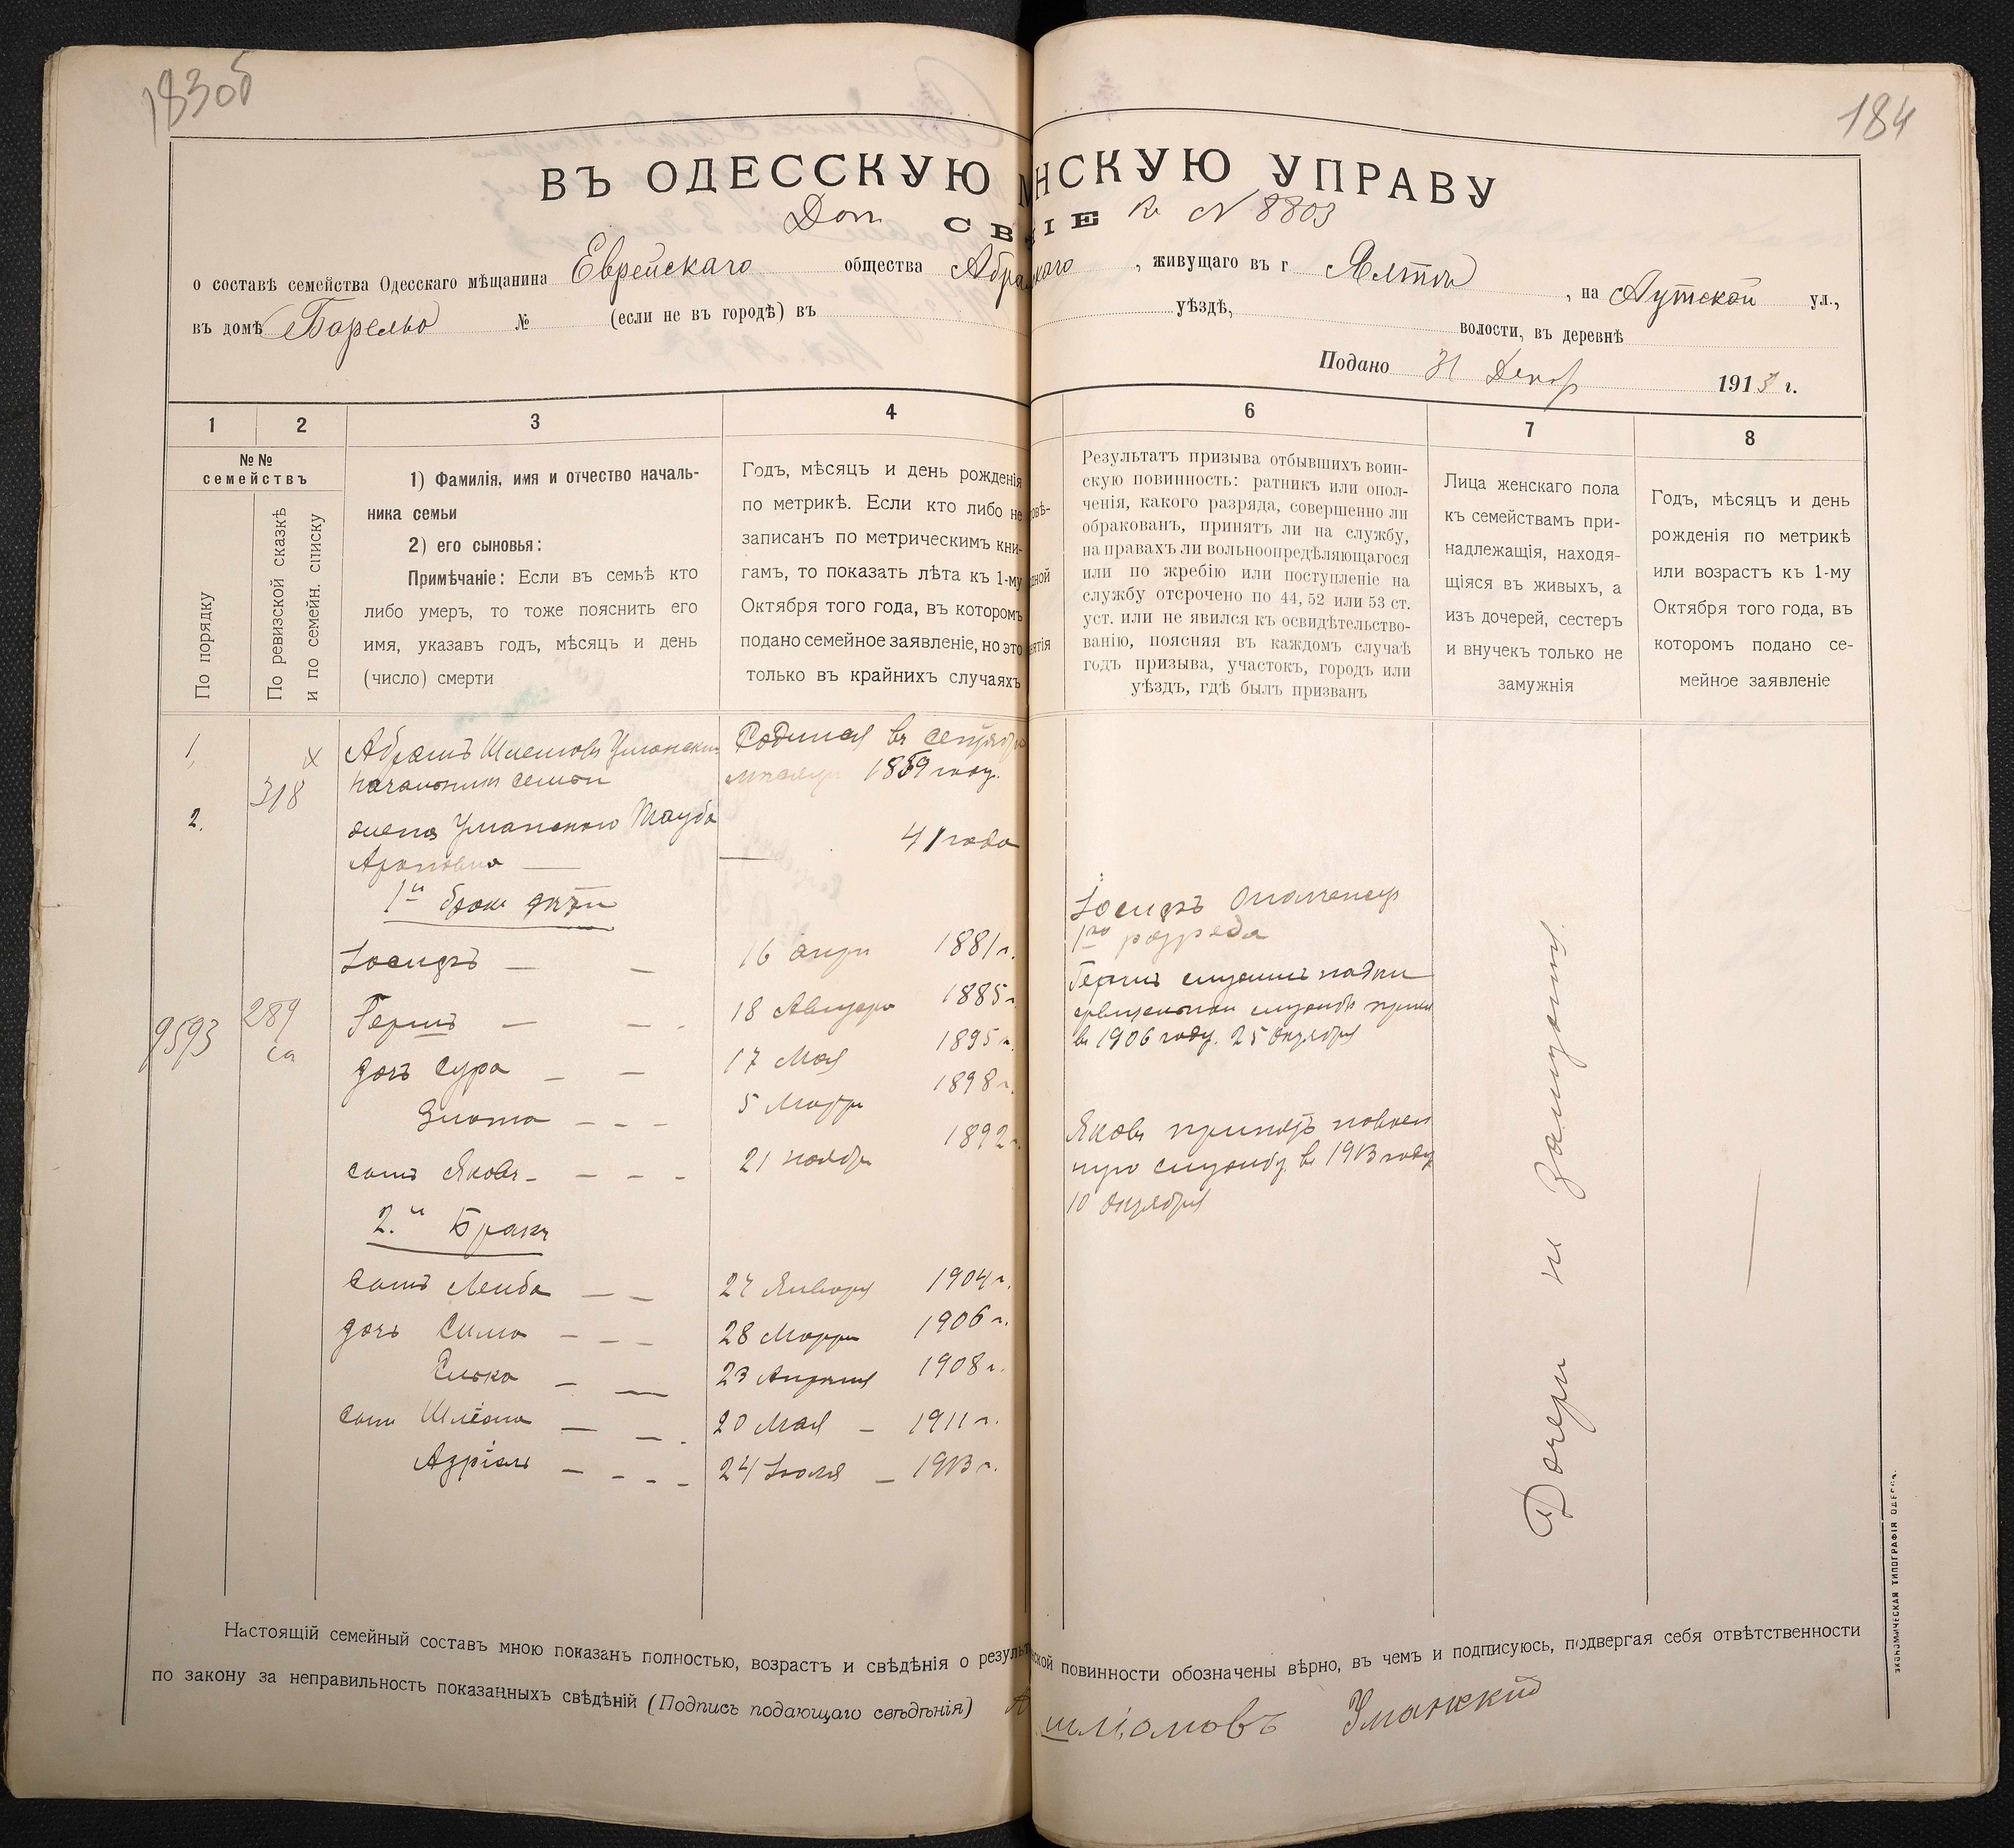 183об
184
ВЪ ОДЕССКУЮ НСКУЮ УПРАВУ
Доп. СВ IE къ N 8803
о составѣ семейства Одесскаго мѣщанина Еврейскаго общества Абра скаго, живущаго въ г Ялты, на Аутской ул.,
въ домѣ № (если не въ городѣ) въ уѣздѣ, волости, въ деревнѣ
Подано 31 Декаб 1913 г.
1
2
3
4
6
7
8
№№
семействъ
По порядку
По ревизской сказкѣ
и по семейн. списку
1) Фамилія, имя и отчество началь-
ника семьи
2) его сыновья:
Примѣчаніе: Если въ семьѣ кто
либо умеръ, то тоже пояснить его
имя, указавъ годъ, мѣсяцъ и день
(число) смерти
Годъ, мѣсяцъ и день рожденія
по метрикѣ. Если кто либо не
записанъ по метрическимъ кни-
гамъ, то показать лѣта къ 1-му
Октября того года, въ которомъ
подано семейное заявленіе, но это
только въ крайнихъ случаяхъ
Результатъ призыва отбывшихъ воин-
скую повинность: ратникъ или опол-
ченія, какого разряда, совершенно ли
обракованъ, принятъ ли на службу,
на правахъ ли вольноопредѣляющагося
или по жребію или поступленіе на
службу отсрочено по 44, 52 или 53 ст.
уст. или не явился къ освидѣтельство-
ванію, поясняя въ каждомъ случаѣ
годъ призыва, участокъ, городъ или
уѣздъ, гдѣ былъ призванъ
Лица женскаго пола
къ семействамъ при-
надлежащія, находя-
щіяся въ живыхъ, а
изъ дочерей, сестеръ
и внучекъ только не
замужнія
Годъ, мѣсяцъ и день
рожденія по метрикѣ
или возрастъ къ 1-му
Октября того года, въ
которомъ подано се-
мейное заявленіе
1. х Абрамъ Шлемовъ Уманский Родился въ сентября
318 начальник семьи месяца 1859 году.
2. жена Уманского Тауба 41 года
Ароновна —
1й брак дѣти
Іосифъ — — 16 1881 г. Іосифъ ополченец
1го разряда
9593 289 са Гершъ — — 18 1885 г
в 1906 году. 25 октября
дочь Сура — — 17 Мая 1895 г.
Злота — — — 5 Марта 1898 г.
сынъ Яковъ — — — 21 ноября 1892 г. Яковъ принятъ на воен
ную службу в 1913 году
10 октября
2.й Бракъ
сынъ Лейба — — 27 Января 1904 г.
дочь Сима — — — 28 Марта 1906 г.
Елька — — 23 Апреля 1908 г.
сынъ Шлёма — — 20 Мая — 1911 г.
Азріель — — — — 24 Іюля — 1913 г.
Дочери не замужни.
Настоящій семейный составъ мною показанъ полностью, возрастъ и свѣдѣнія о резуль ской повинности обозначены вѣрно, въ чемъ и подписуюсь, подвергая себя отвѣтственности
по закону за неправильность показанныхъ свѣдѣній (Подпись подающаго свѣдѣнія) А шліомовъ Уманккий
ЭКОНОМИЧЕСКАЯ ТИПОГРАФІЯ ОДЕССА.